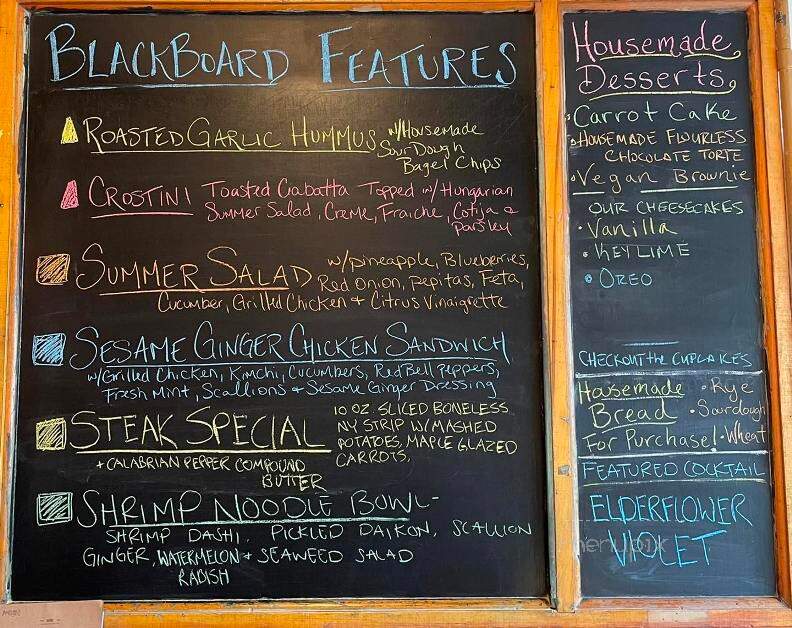 BLACKBOARD FEATURES
ROASTED GARLIC HUMMUS w/Housemade
SourDough
Bagel Chips
CROSTINI Toasted Ciabatta Topped w/ Hungarian
Summer Salad, Creme, Fraiche, Cotija &
parsley
SUMMER SALAD w/pineapple, Blueberries,
Red Onion, pepitas, Feta,
Cucumber, Grilled Chicken + Citrus Vinaigrette
SESAME GINGER CHICKEN SANDWICH
w/Grilled Chicken, Kimchi, Cucumbers, Red Bell Peppers,
Fresh Mint, Scallions & Sesame Ginger Dressing
STEAK SPECIAL
10 OZ. SLICED BONELESS
NY STRIP W/MASHED
POTATOES, MAPLE GLAZED
CARROTS,
+ CALABRIAN PEPPER COMPOUND
BUTTER
SHRIMP NOODLE BOWL-
SHRIMP DASHI, PICKLED DAIKON, SCALLION
GINGER, WATERMELON + SEAWEED SALAD
RADISH
Housemade
Desserts
Carrot Cake
HOUSEMADE FLOURLESS
CHOCOLATE TORTE
Vegan Brownie
OUR CHEESECAKES
• Vanilla
• KEY LIME
• OREO
CHECKOUT the CUPCAKES
Housemade • Rye
Bread • Sourdough
For Purchase! • Wheat
FEATURED COCKTAIL
ELDERFLOWER
VIOLET
menupix